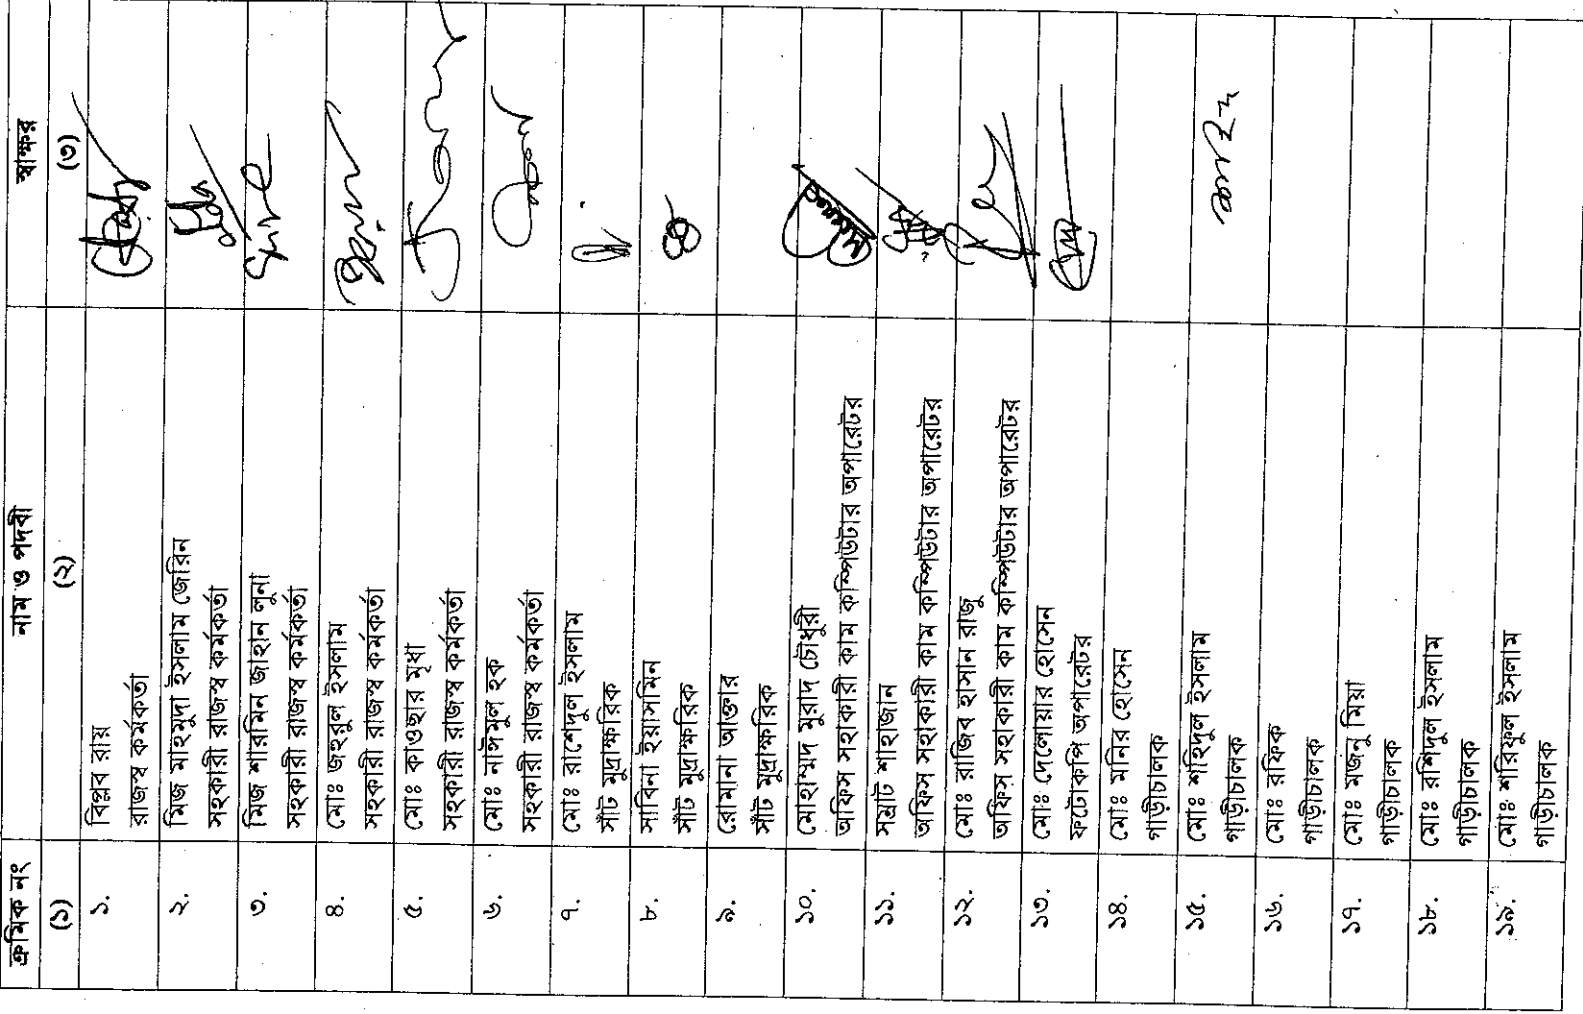 ক্রমিক নং নাম ও পদবী স্বাক্ষর
(১) (২) (৩)
১. বিপ্লব রায়
রাজস্ব কর্মকর্তা
২. মিজ মাহমুদা ইসলাম জেরিন
সহকারী রাজস্ব কর্মকর্তা
৩. মিজ শারমিন জাহান লুনা
সহকারী রাজস্ব কর্মকর্তা
৪. মোঃ জহুরুল ইসলাম
সহকারী রাজস্ব কর্মকর্তা
৫. মোঃ কাওছার মৃধা
সহকারী রাজস্ব কর্মকর্তা
৬. মোঃ নাঈমুল হক
সহকারী রাজস্ব কর্মকর্তা
৭. মোঃ রাশেদুল ইসলাম
সাঁট মুদ্রাক্ষরিক
৮. সাবিনা ইয়াসমিন
সাঁট মুদ্রাক্ষরিক
৯. রোমানা আক্তার
সাঁট মুদ্রাক্ষরিক
১০. মোহাম্মদ মুরাদ চৌধুরী
অফিস সহাকারী কাম কম্পিউটার অপারেটর
১১. সম্রাট শাহাজান
অফিস সহাকারী কাম কম্পিউটার অপারেটর
১২. মোঃ রাজিব হাসান রাজু
অফিস সহাকারী কাম কম্পিউটার অপারেটর
১৩. মোঃ দেলোয়ার হোসেন
ফটোকপি অপারেটর
১৪. মোঃ মনির হোসেন
গাড়ীচালক
১৫. মোঃ শহিদুল ইসলাম
গাড়ীচালক
১৬. মোঃ রফিক
গাড়ীচালক
১৭. মোঃ মজনু মিয়া
গাড়ীচালক
১৮. মোঃ রশিদুল ইসলাম
গাড়ীচালক
১৯. মোঃ শরিফুল ইসলাম
গাড়ীচালক